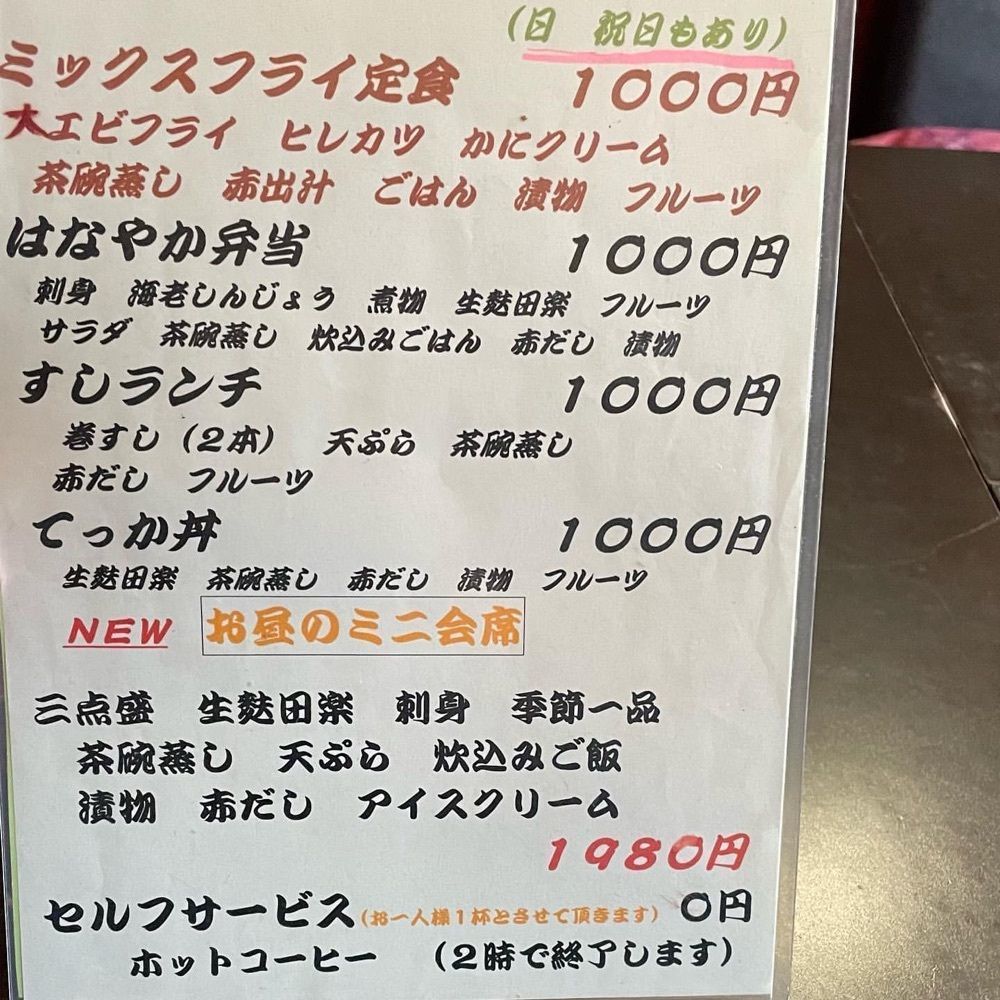 (日　祝日もあり)
ミックスフライ定食　1000円
大エビフライ　ヒレカツ　かにクリーム
茶碗蒸し　赤出汁　ごはん　漬物　フルーツ
はなやか弁当　1000円
刺身　海老しんじょう　煮物　生麩田楽　フルーツ
サラダ　茶碗蒸し　炊込みごはん　赤だし　漬物
すしランチ　1000円
巻すし(2本)　天ぷら　茶碗蒸し
赤だし　フルーツ
てっか丼　1000円
生麩田楽　茶碗蒸し　赤だし　漬物　フルーツ
NEW　お昼のミニ会席
三点盛　生麩田楽　刺身　季節一品
茶碗蒸し　天ぷら　炊込みご飯
漬物　赤だし　アイスクリーム
1980円
セルフサービス(お一人様1杯とさせて頂きます)　0円
ホットコーヒー　(2時で終了します)